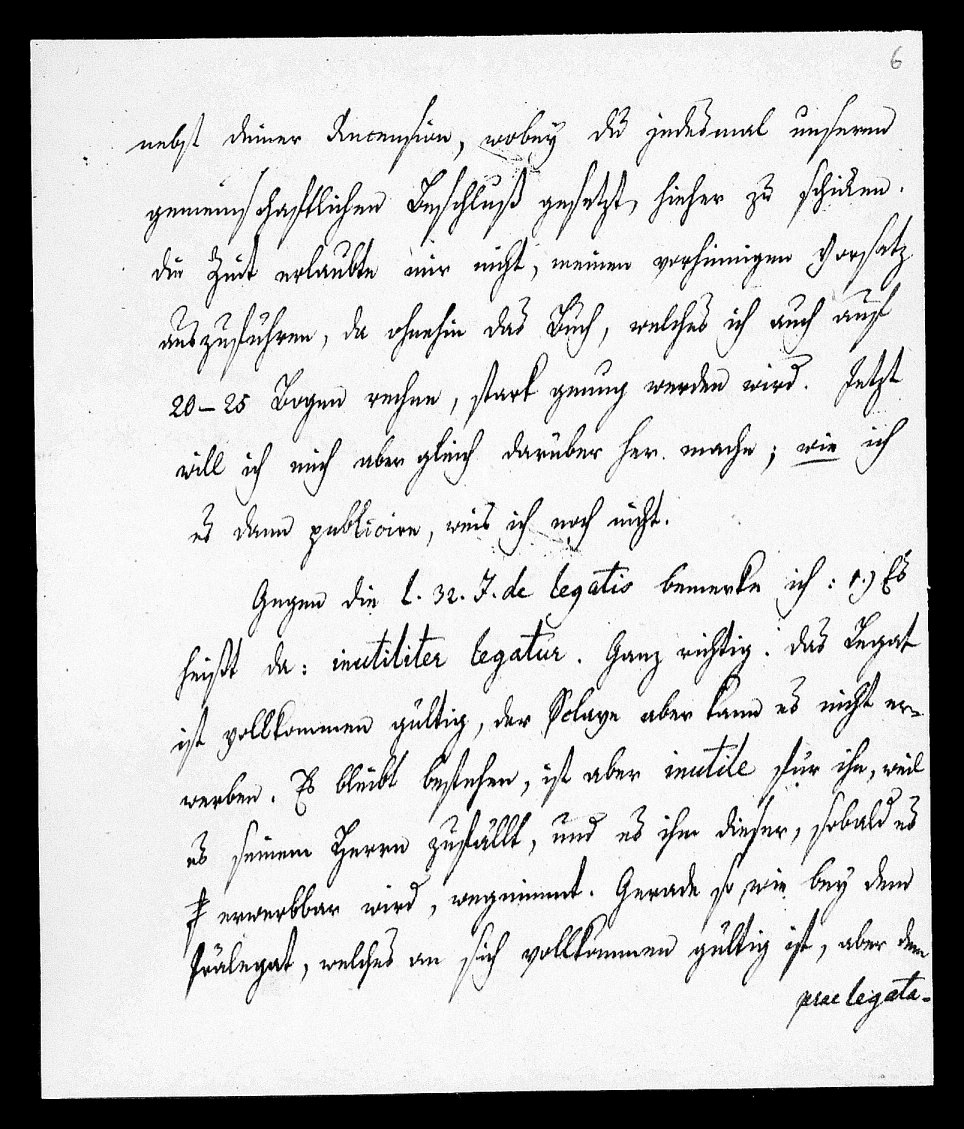 6
nebst deiner Recension, wobey du jedesmal unsern
gemeinschaftlichen Beschluß gesetzt, hieher zu schicken.
die Zeit erlaubte mir nicht, meinen vorhinnigen Vorsatz
auszuführen, da ohnehin das Buch, welches ich auch auf
20–25 Bogen rechne, stark genug werden wird. Jetzt
will ich mich aber gleich darüber her machen; wie ich
es dann publicire, weis ich noch nicht.
Gegen die l. 32. J. de legatis bemerke ich: 1.) Es
heißt da: inutiliter legatur. Ganz richtig: das Legat
ist vollkommen gültig, der Sclave aber kann es nicht er=
werben. Es bleibt bestehen, ist aber inutile für ihn, weil
es seinem Herrn zufällt, und es ihm dieser, sobald es
erwerbbar wird, wegnimmt. Gerade so wie bey dem
Prälegat, welches an sich vollkommen gültig ist, aber dem
praelegata-